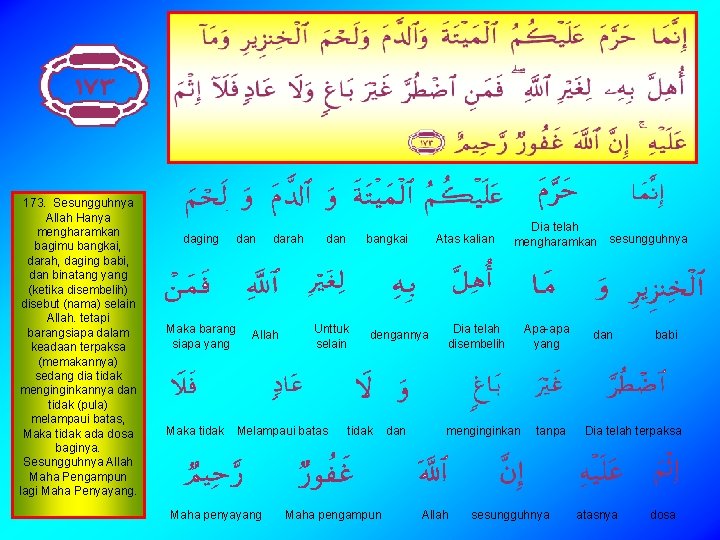 ١٧٣
إِنَّمَا حَرَّمَ عَلَيْكُمُ ٱلْمَيْتَةَ وَٱلدَّمَ وَلَحْمَ ٱلْخِنزِيرِ وَمَآ
أُهِلَّ بِهِۦ لِغَيْرِ ٱللَّهِ ۖ فَمَنِ ٱضْطُرَّ غَيْرَ بَاغٍ وَلَا عَادٍ فَلَآ إِثْمَ
عَلَيْهِ ۚ إِنَّ ٱللَّهَ غَفُورٌ رَّحِيمٌ ١٧٣
173. Sesungguhnya
Allah Hanya
mengharamkan
bagimu bangkai,
darah, daging babi,
dan binatang yang
(ketika disembelih)
disebut (nama) selain
Allah. tetapi
barangsiapa dalam
keadaan terpaksa
(memakannya)
sedang dia tidak
menginginkannya dan
tidak (pula)
melampaui batas,
Maka tidak ada dosa
baginya.
Sesungguhnya Allah
Maha Pengampun
lagi Maha Penyayang.
إِنَّمَا حَرَّمَ عَلَيْكُمُ ٱلْمَيْتَةَ وَ ٱلدَّمَ وَ لَحْمَ
daging dan darah dan bangkai Atas kalian Dia telah mengharamkan sesungguhnya
ٱلْخِنزِيرِ وَ مَا أُهِلَّ بِهِ لِغَيْرِ ٱللَّهِ فَمَنْ
Maka barang siapa yang Allah Unttuk selain dengannya Dia telah disembelih Apa-apa yang dan babi
ٱضْطُرَّ غَيْرَ بَاغٍ وَ لَا عَادٍ فَلَا
Maka tidak Melampaui batas tidak dan menginginkan tanpa Dia telah terpaksa
إِثْمَ عَلَيْهِ إِنَّ ٱللَّهَ غَفُورٌ رَّحِيمٌ
Maha penyayang Maha pengampun Allah sesungguhnya atasnya dosa